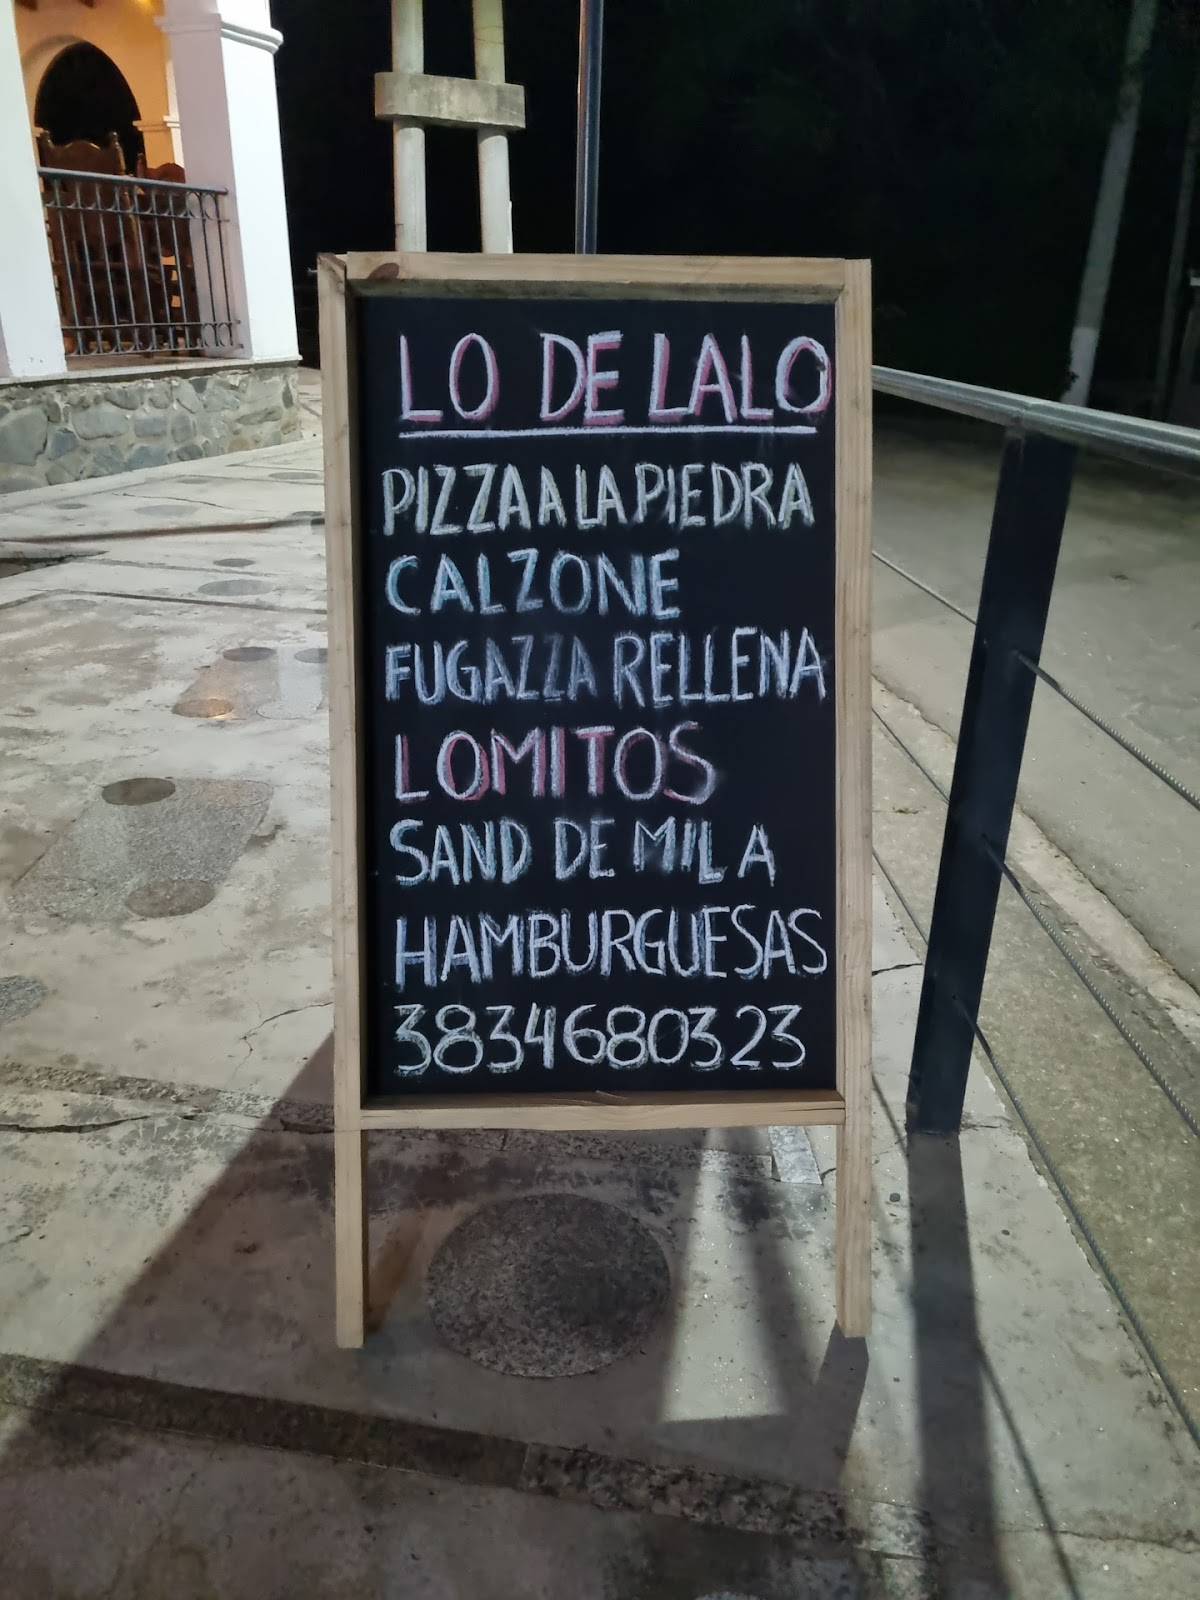 LO DE LALO
PIZZA A LA PIEDRA
CALZONE
FUGAZZA RELLENA
LOMITOS
SAND DE MILA
HAMBURGUESAS
3834680323